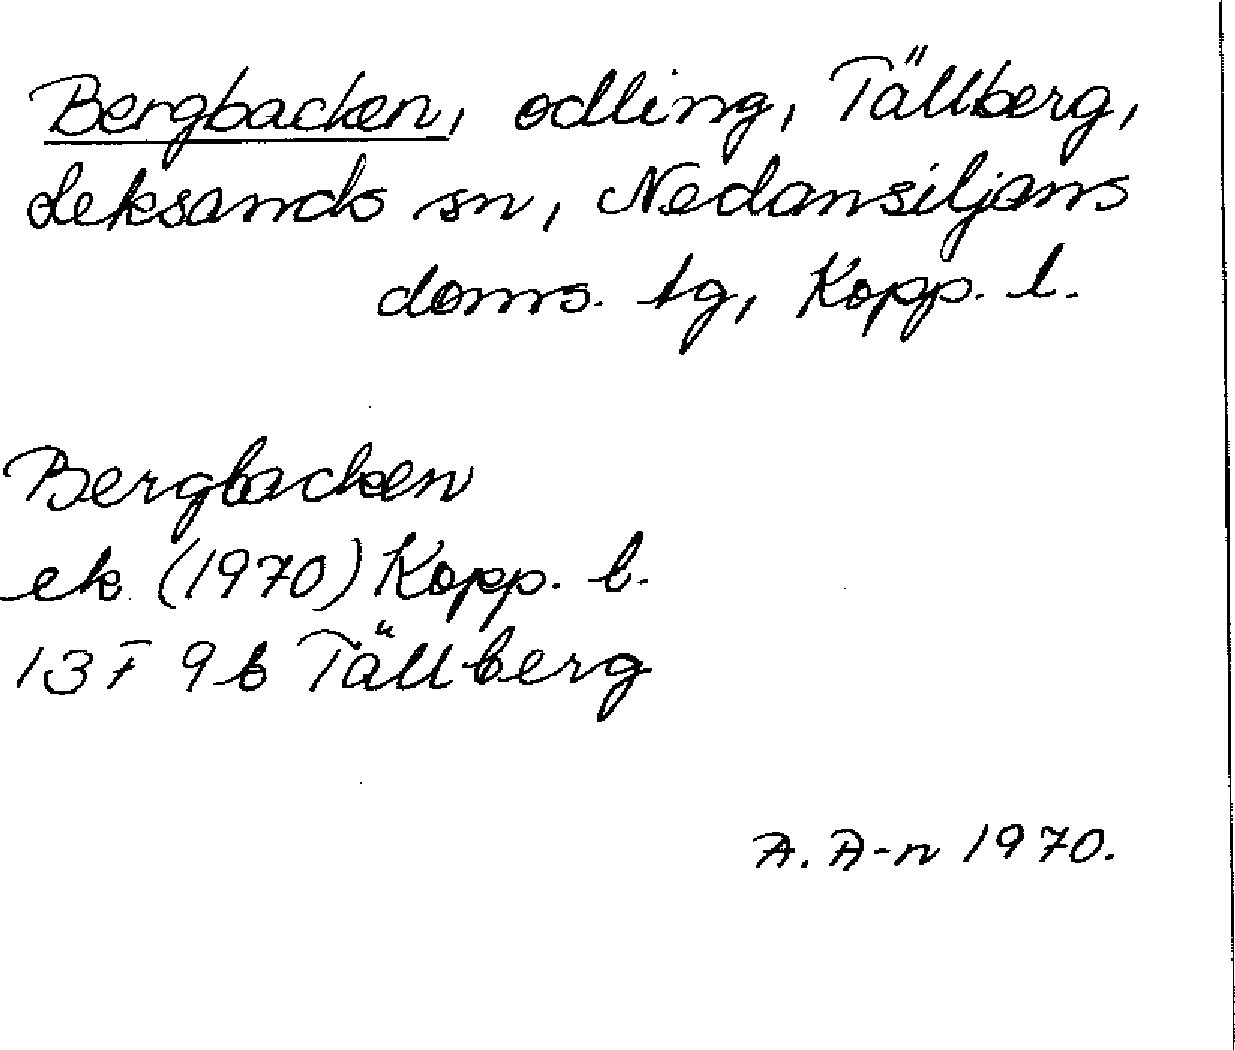 Bergbacken, odling, Tällberg,
Leksands sn, Nedansiljans
doms. tg, Kopp. l.
Bergbacken
ek (1970) Kopp. l.
13 F 9b Tällberg
A. A-n 1970.